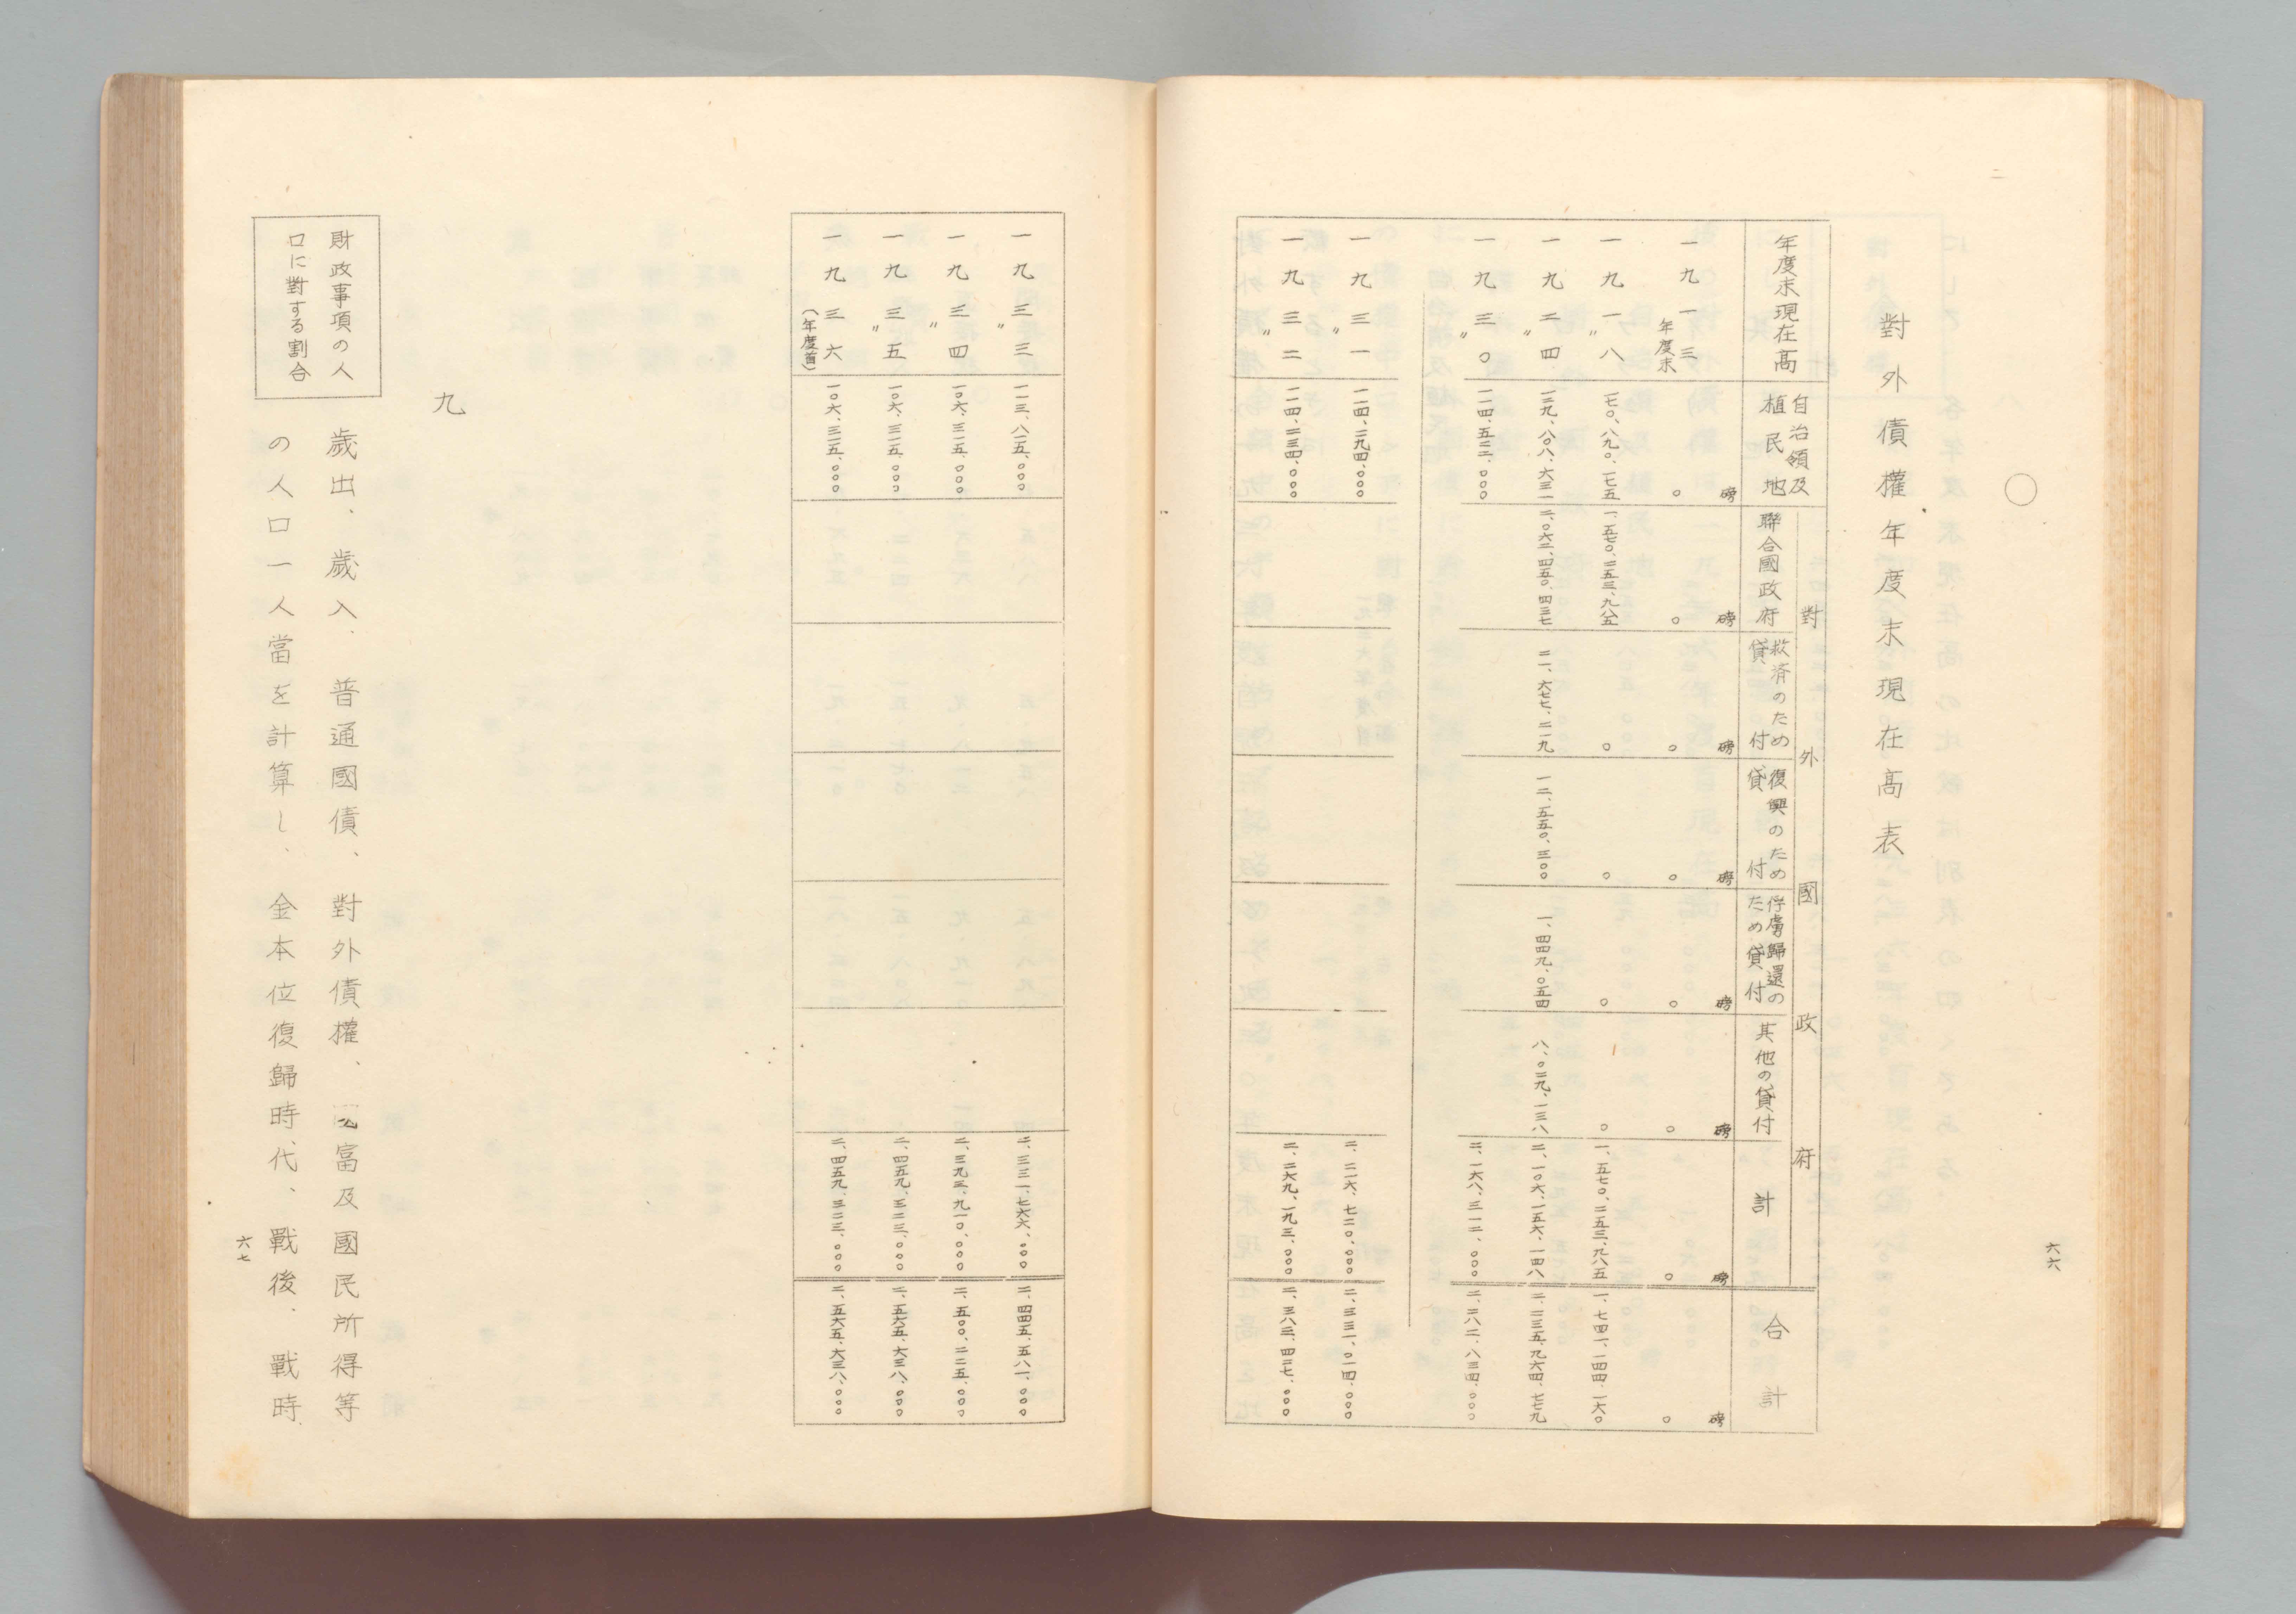 六六
對外債權年度末現在高表
年度末現在高 自治領及植民地 對外國政府 聯合國政府 救済のため貸付 復興のため貸付 俘虜歸還のため貸付 其他の貸付 計 合計
磅 磅 磅 磅 磅 磅 磅 磅
一九一三年度末 〇 〇 〇 〇 〇 〇 〇 〇
一九一八〃 一七〇、八九〇、一七五 一、五七〇、二五三、九八五 〇 〇 〇 〇 一、五七〇、二五三、九八五 一、七四一、一四四、一六〇
一九二四〃 一三九、八〇八、六三一 二、〇六二、四五〇、四三七 二一、六七七、二一九 一二、五五〇、三〇〇 一、四四九、〇五四 八、〇二九、一三八 二、一〇六、一五六、一四八 二、二三五、九六四、七七九
一九三〇〃 一一四、五二二、〇〇〇 二、一六八、三一二、〇〇〇 二、二八二、八三四、〇〇〇
一九三一〃 一一四、二九四、〇〇〇 二、二一六、七二〇、〇〇〇 二、三三一、〇一四、〇〇〇
一九三二〃 一一四、二三四、〇〇〇 二、二六九、一九三、〇〇〇 二、三八三、四二七、〇〇〇
一九三三〃 一一三、八一五、〇〇〇 二、三三一、七六六、〇〇〇 二、四四五、五八一、〇〇〇
一九三四〃 一〇六、三一五、〇〇〇 二、三九三、九一〇、〇〇〇 二、五〇〇、二二五、〇〇〇
一九三五〃 一〇六、三一五、〇〇〇 二、四五九、三二三、〇〇〇 二、五六五、六三八、〇〇〇
一九三六(年度首) 一〇六、三一五、〇〇〇 二、四五九、三二三、〇〇〇 二、五六五、六三八、〇〇〇
九
財政事項の人
口に對する割合
歳出、歳入、普通國債、對外債權、富及國民所得等
の人口一人當を計算し、金本位復歸時代、戰後、戰時
六七